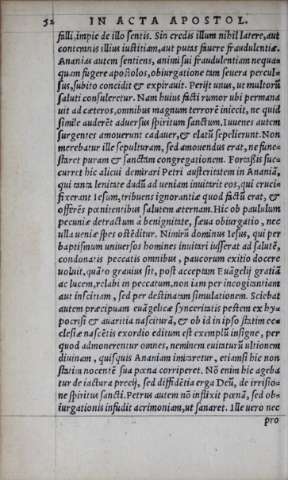 52 IN ACTA APOSTOL.
filli, impie de illo sentis. Sin credis illum nihil latere, aut
contemnis illius iustitiam, aut putas fauere fraudulentiæ.
Ananias autem sentiens, animi sui fraudulentiam nequa
quam fugere apostolos, obiurgatione tam seuera percul-
sus, subito concidit & expirauit. Perijt unus, ut multorũ
saluti consuleretur. Nam huius facti rumor ubi permana
uit ad cæteros, omnibus magnum terrorẽ iniecit, ne quid
simile auderẽt aduersus spiritum sanctum. Iuuenes autem
surgentes amouerunt cadauer, & elatũ sepelierunt. Non
merebatur ille sepulturam, sed amouendus erat, ne fune-
staret puram & sanctam congregationem. Forsitãs succu
curret hic alicui demirari Petri austeritatem in Ananiã,
qui tanta lenitate dudũ ad ueniam inuitarit eos, qui cruci
fixerant Iesum, tribuens ignorantiæ quod factũ erat, &
offerẽs pœnitentibus salutem æternam. Hic ob paululum
pecuniæ detractum à benignitate, sæua obiurgatio, nec
ulla ueniæ spes ostẽditur. Nimirũ dominus Iesus, qui per
baptismum uniuersos homines inuitari iusserat ad salutẽ,
condonatis peccatis omnibus, paucorum exitio docere
uoluit, quãto grauius sit, post acceptam Euãgelij gratiã
ac lucem, relabi in peccatum, non iam per incogitantiam
aut inscitiam, sed per destinatam simulationem. Sciebat
autem præcipuam euãgelicæ synceritatis pestem ex hy-
pocrisi & auaritia nasciturã, & ob id in ipso statim ec-
clesiæ nascẽtis exordio editum est exemplũ insigne, per
quod admonerentur omnes, neminem euitaturũ ultionem
diuinam, quisquis Ananiam imitaretur, etiamsi hic non
statim nocentẽ sua pœna corriperet. Nõ enim hic ageba
tur de iactura precij, sed diffidẽtia erga Deũ, de irrisio-
ne spiritus sancti. Petrus autem nõ inflixit pœnã, sed ob-
iurgationis infudit acrimoniam, ut sanaret. Ille uero nec
pro